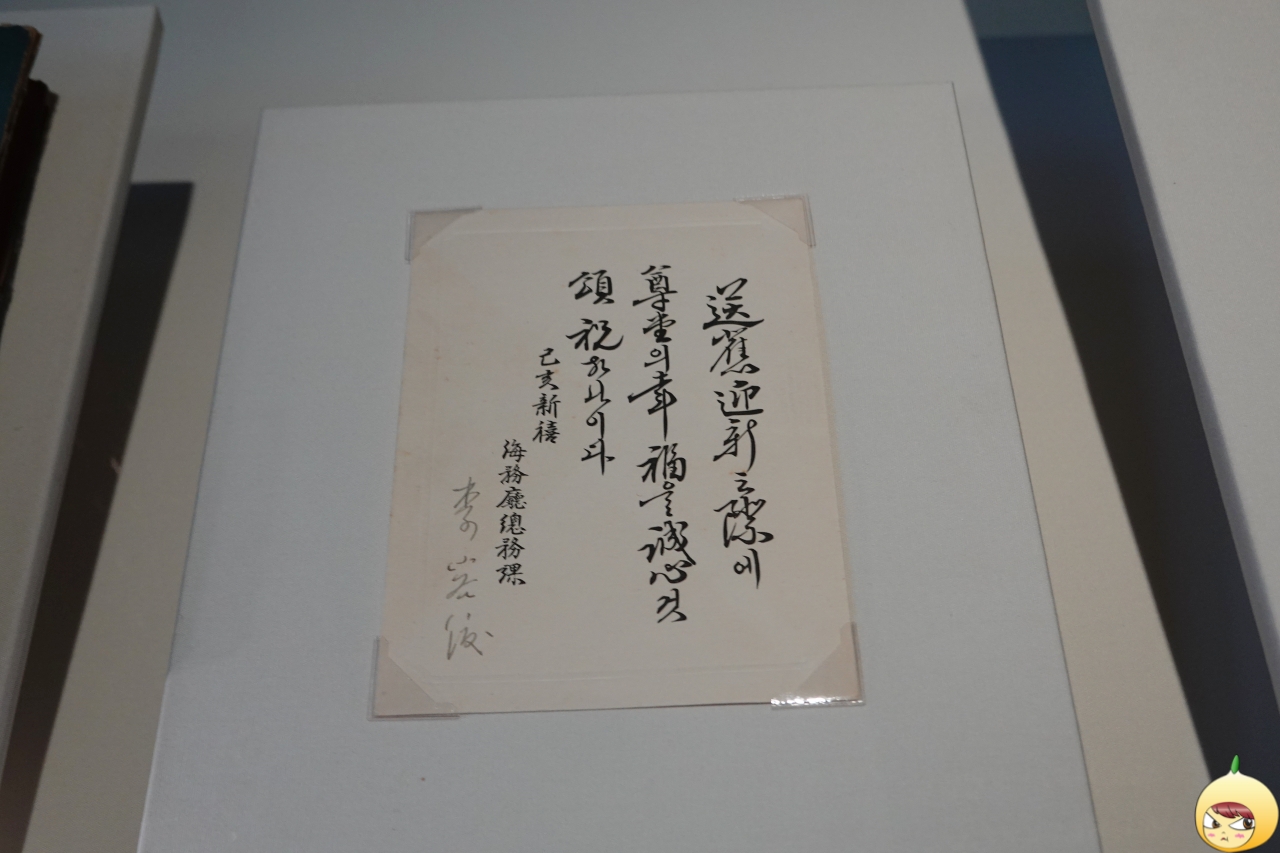 送舊迎新之際에
尊堂의幸福을誠心껏
頌祝하나이다
己亥新禧
海務廳總務課
李